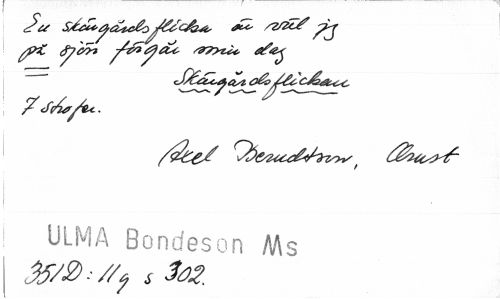 En skärgårdsflicka är väl jg
på sjön förgår min dag
Skärgårdsflickan
7 strofer.
Axel Berndtson, Onust
ULMA Bondeson Ms
351D: 11 q s 302.